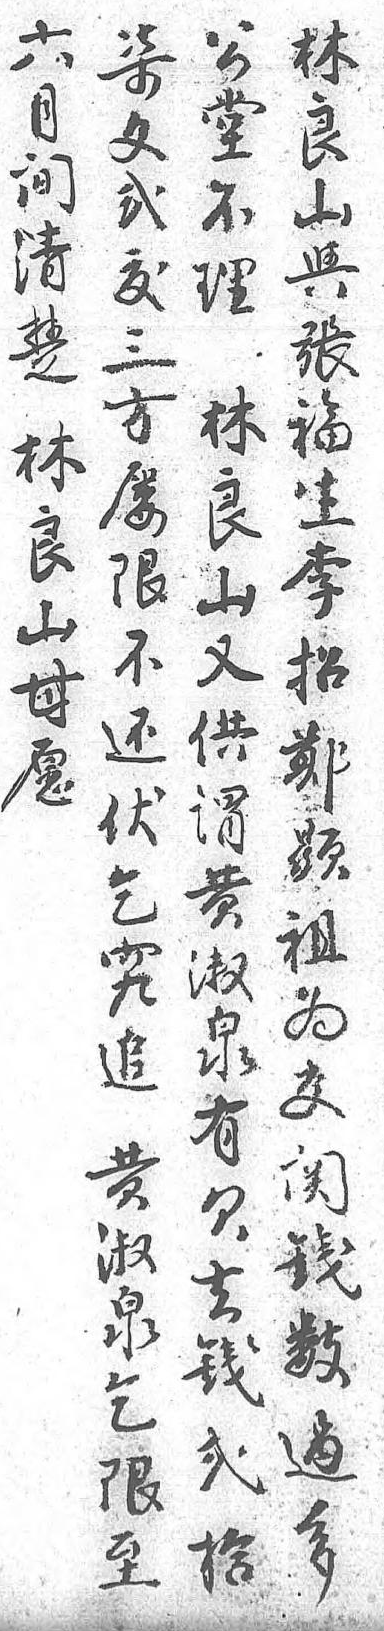 林良山與張福生李招鄭顕祖为交関錢數过多
公堂不理　林良山又供謂黄淑泉有欠去錢弍拾
柒文弍交三方屡限不还伏乞究追　黄淑泉乞限至
六月间清楚　林良山甘愿